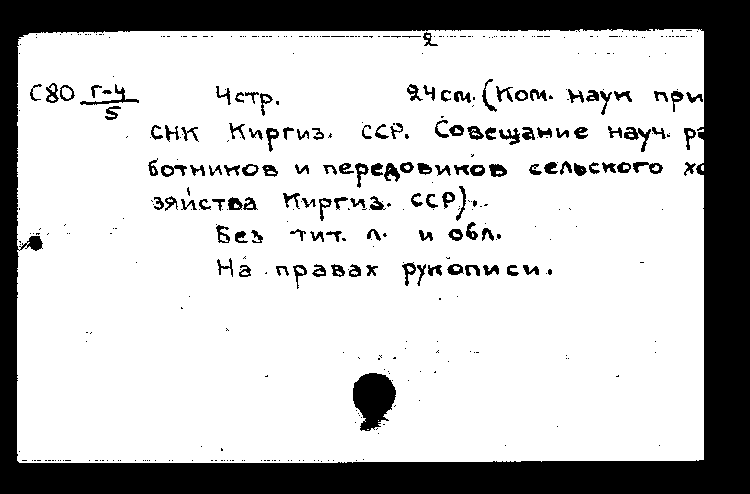 2
С80 Г-4/5 4стр. 24см. (Ком. наук при
СНК Киргиз. ССР. Совещание науч. ра
ботников и передовиков сельского хо
зяйства Киргиз. ССР).
Без тит. л. и обл.
На правах рукописи.